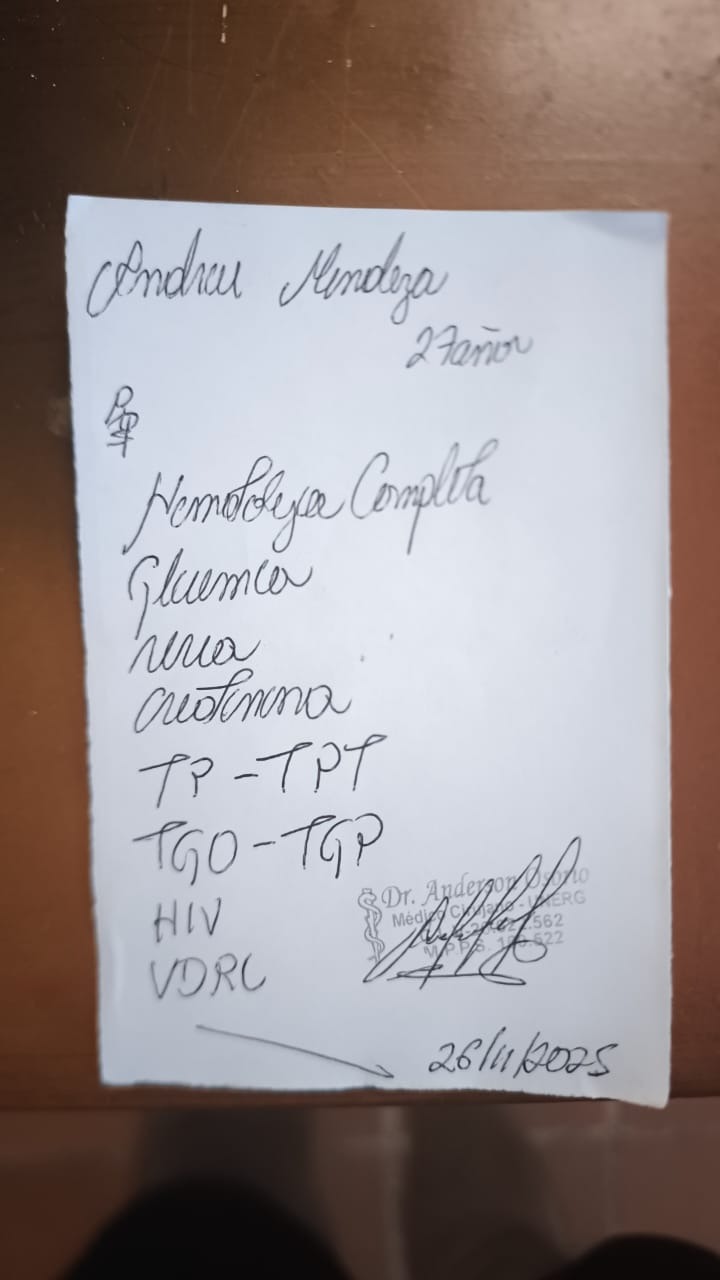 Andreu Mendoza
27 años
Hematología Completa
Glicemia
Urea
Creatinina
TP - TPT
TGO - TGP
HIV
VDRL
Dr. Anderson Osorio
Médico Cirujano - UNERG
M.P.P.S.
26/11/2025